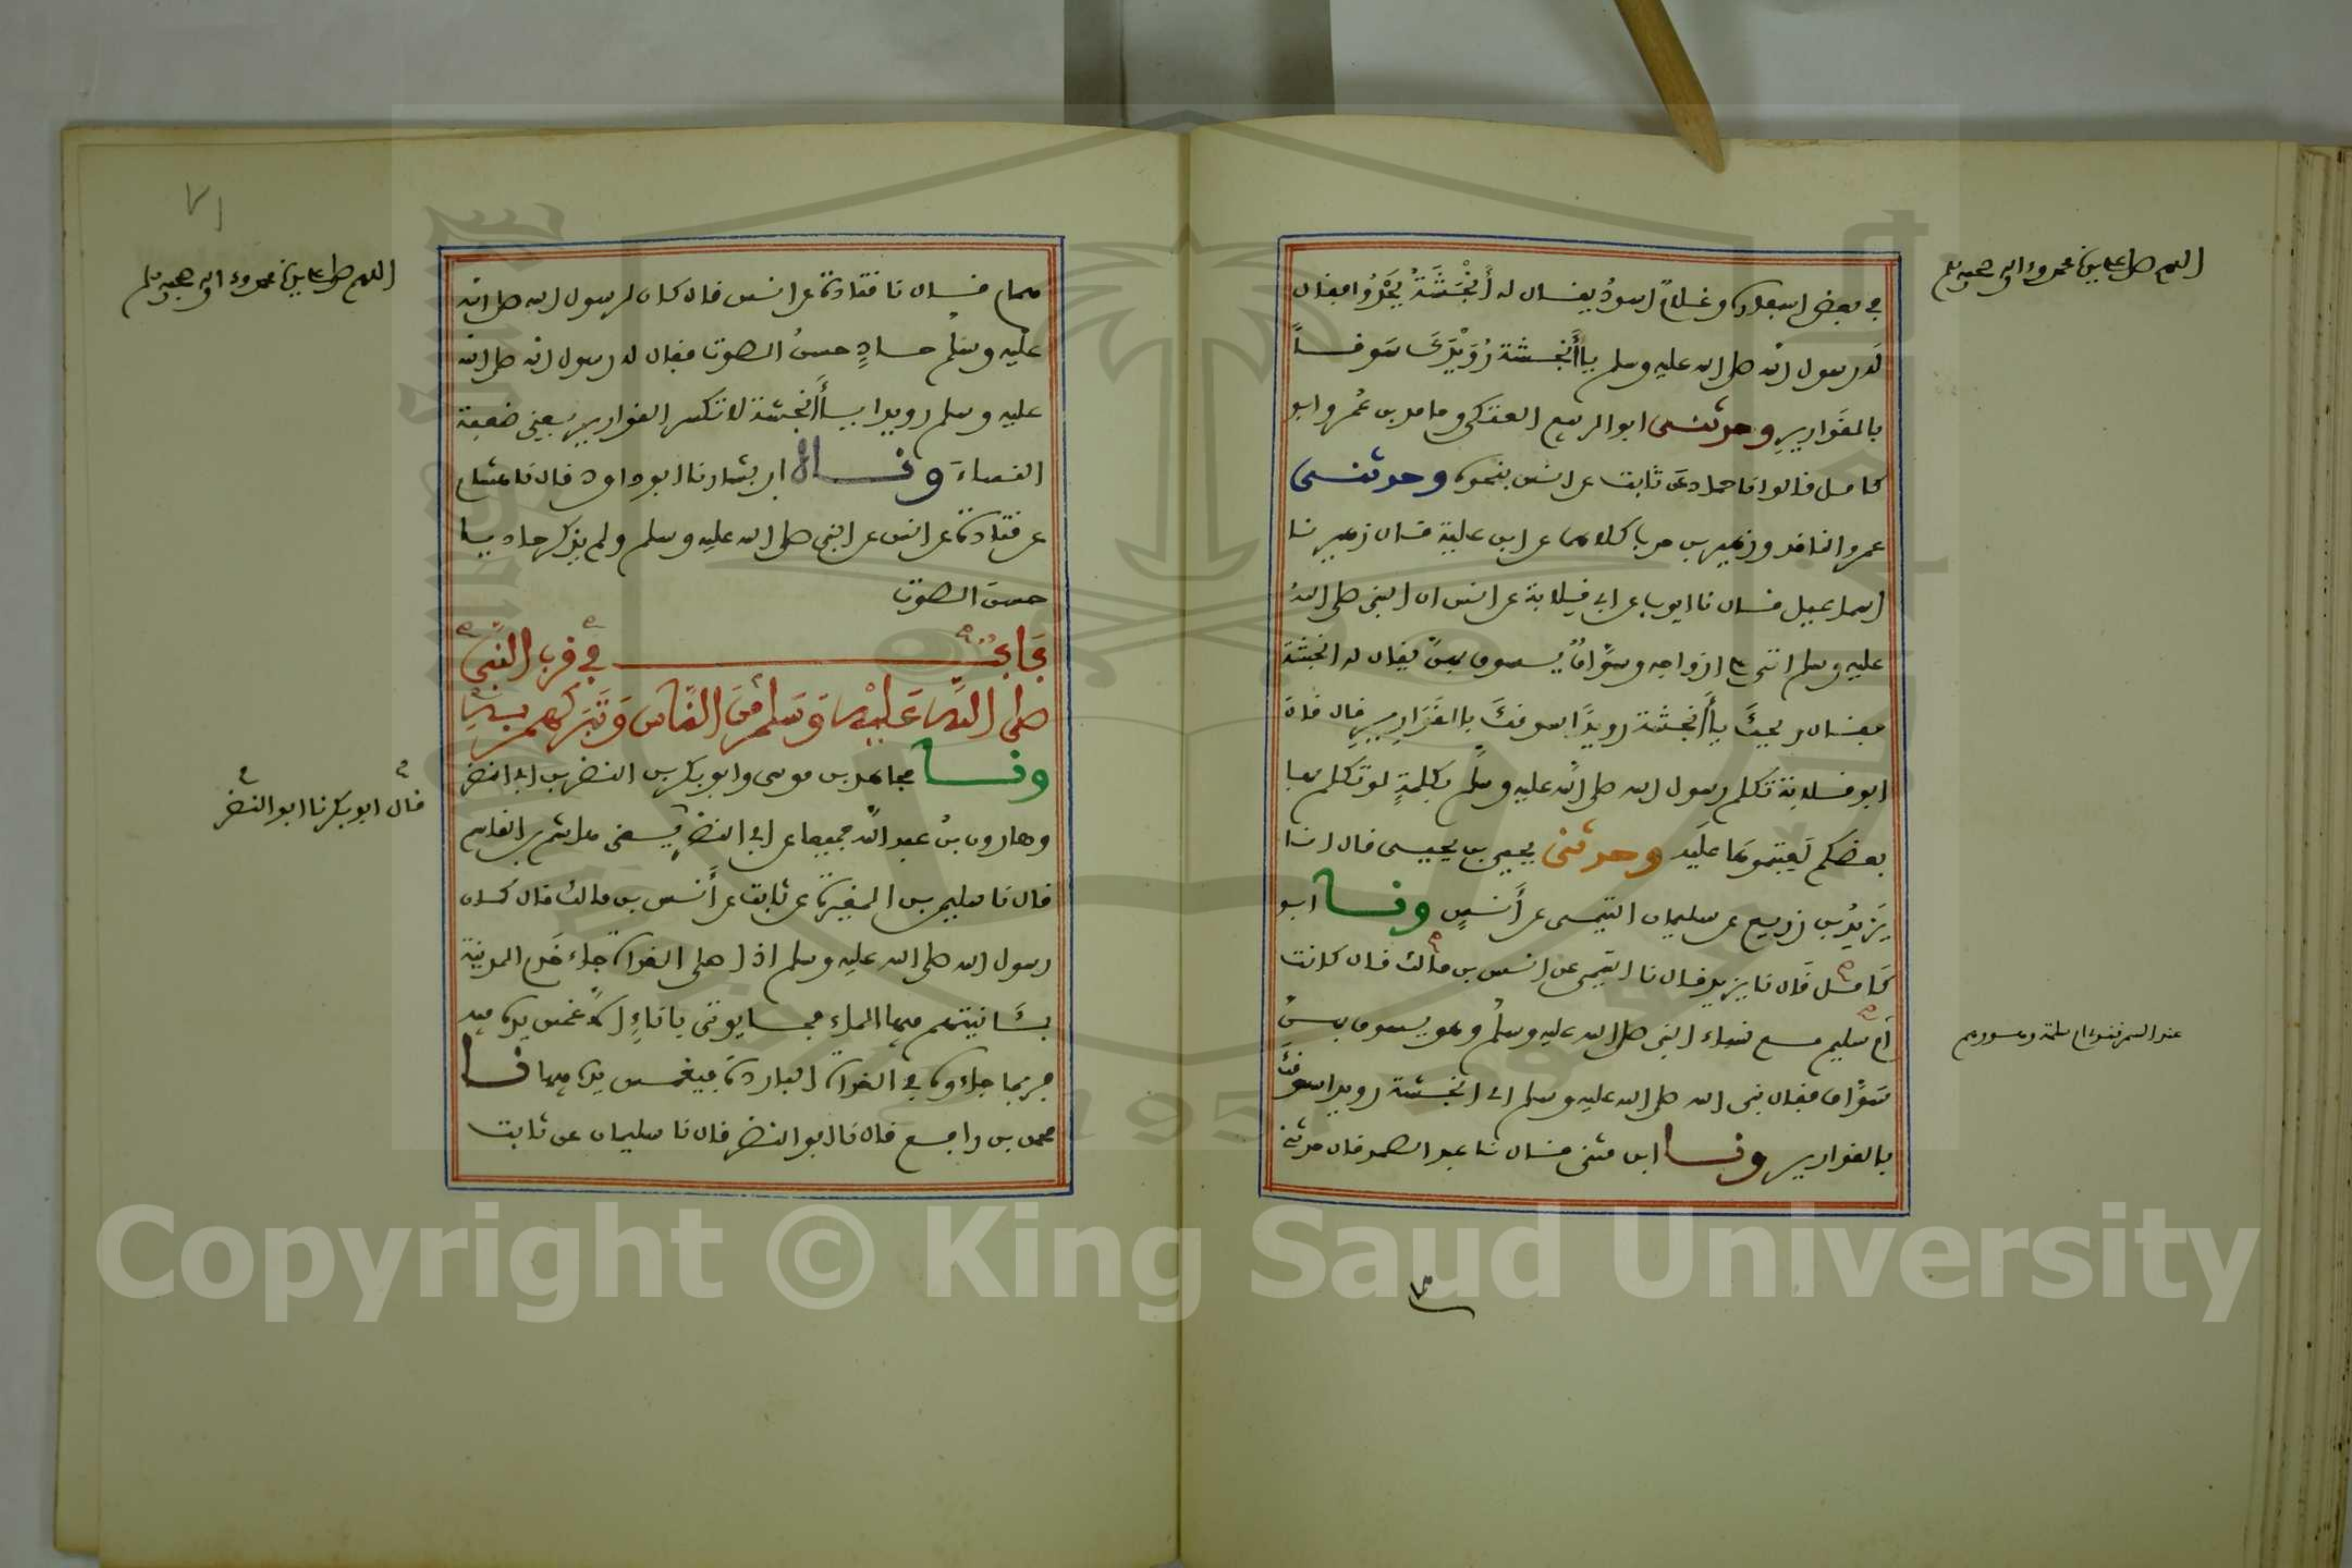 اللهم صل على سيدنا محمد وءاله وصحبه وسلم
في بعض اسفاره وغلامٌ اسودُ يقال له أَنْجَشَةُ يَحْدُوا فقال
له رسول الله صلى الله عليه وسلم يا أَنجشة رُوَيْدَكَ سَوقاً
بالقَوارِيرِ وحدثنى ابو الربيع العتكى وحامد بن عُمر وابو
كامل قالوا نا حماد عَن ثابت عن انس بنحوه وحدثنى
عمرو الناقد وزهير بن حرب كلاهما عن ابن علية قال زهير نا
اسماعيل قال نا ايوب عن ابي قلابة عن انس ان النبى صلى اللهُ
عليه وسلم اتى على ازواجه وسَوَّاقٌ يسوق بهنَّ يقال له انجشة
فقال ويحكَ يا أَنجشة رويدًا سوقكَ بالقَوارِيرِ قال قال
ابو قلابة تكلم رسول الله صلى الله عليه وسلم بكلمةٍ لو تكلم بها
بعضكم لَعِبْتموهَا عليه وحدثنى يحيى بن يحيى قال انا
يَزيدُ بن زريع عن سليمان التيمى عن أَنَسٍ ونا ابو
كَامل قَال نا يزيد قال نا التيمى عن انس بن مالك قال كانت
أم سليم مع نساء النبى صلى الله عليه وسلم وهو يسوق بهنَّ
سَوَّاق فقال نبى الله صلى الله عليه وسلم اى انجشة رويدا سوقكَ
بالقوارير ونا ابن مثنى قال نا عبد الصمد قال حدثنى
عند السمرقندى ام سلمة وهو وهم
اللهم صل على سيدنا محمد وءاله وصحبه وسلم
همام قال نا قتادة عن انس قال كان لرسول الله صلى الله
عليه وسلم حادٍ حسنُ الصوت فقال له رسول الله صلى الله
عليه وسلم رويدا يا أَنجشة لا تكسر القوارير يَعنِى ضعفة
النساءَ وناه ابن بشار نا ابو داود قال نا هشام
عن قتادة عن انس عن النبى صلى الله عليه وسلم ولم يذكر حاديا
حسنَ الصوت
بَابٌ في قرب النَّبِىّ
صلى اللَّه عَليْه وَسَلم مِنَ النَّاس وَتَبَركهم بِه
ونا مجاهد بن موسى وابو بكر بن النضر بن ابي النضر
وهارون بنُ عبد الله جميعا عن ابي النضر يعنى هاشم بن القاسم
قال نا سليمن بن المغيرة عن ثابت عن أَنس بن مالك قال كان
رسول الله صلى الله عليه وسلم اذا صلى الغداة جاء خَدم المدينة
بئَانيتهم فيها الماء فما يوتى باناءٍ الا غمس يده فيه
فربما جاءوه في الغداة الباردةَ فيغمس يده فيها نا
محمد بن رافع قال نا ابو النضر قال نا سليمان عن ثابت
قال ابو بكر نا ابو النضر
Copyright © King Saud University
1957